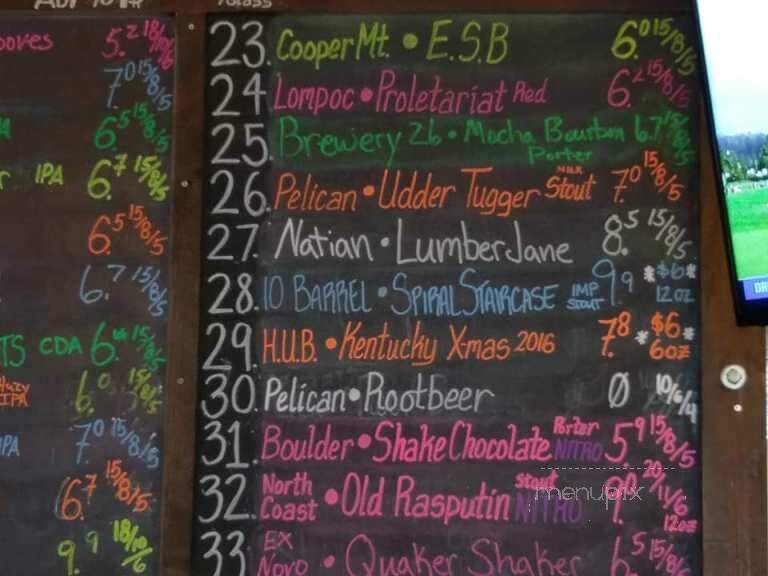 ooves 5.2 18/10/6
7.0 15/8/5
6.5 15/8/5
IPA 6.7 15/8/5
6.5 15/8/5
6.7 15/8/5
TS CDA 6. 15/8/5
Hazy IPA 6.0 15/8/5
IPA 7.0 15/8/5
6.7 15/8/5
9.9 18/10/6
23. Cooper Mt. • E.S.B 6.0 15/8/5
24. Lompoc • Proletariat Red 6.2 15/8/5
25. Brewery 26 • Mocha Bourbon Porter 6.7 15/8/5
26. Pelican • Udder Tugger Milk Stout 7.0 15/8/5
27. Natian • LumberJane 8.5 15/8/5
28. 10 BARREL • SPIRAL STAIRCASE IMP STOUT 9.9 *$6* 12oz
29. H.U.B. • Kentucky X-mas 2016 7.8 *$6* 6oz
30. Pelican • Rootbeer Ø 10/6/4
31. Boulder • Shake Chocolate Porter NITRO 5.9 15/8/5
32. North Coast • Old Rasputin Stout NITRO 9.0 20/11/6 12oz
33. EX Novo • Quaker Shaker 6.5 15/8/5
menupix